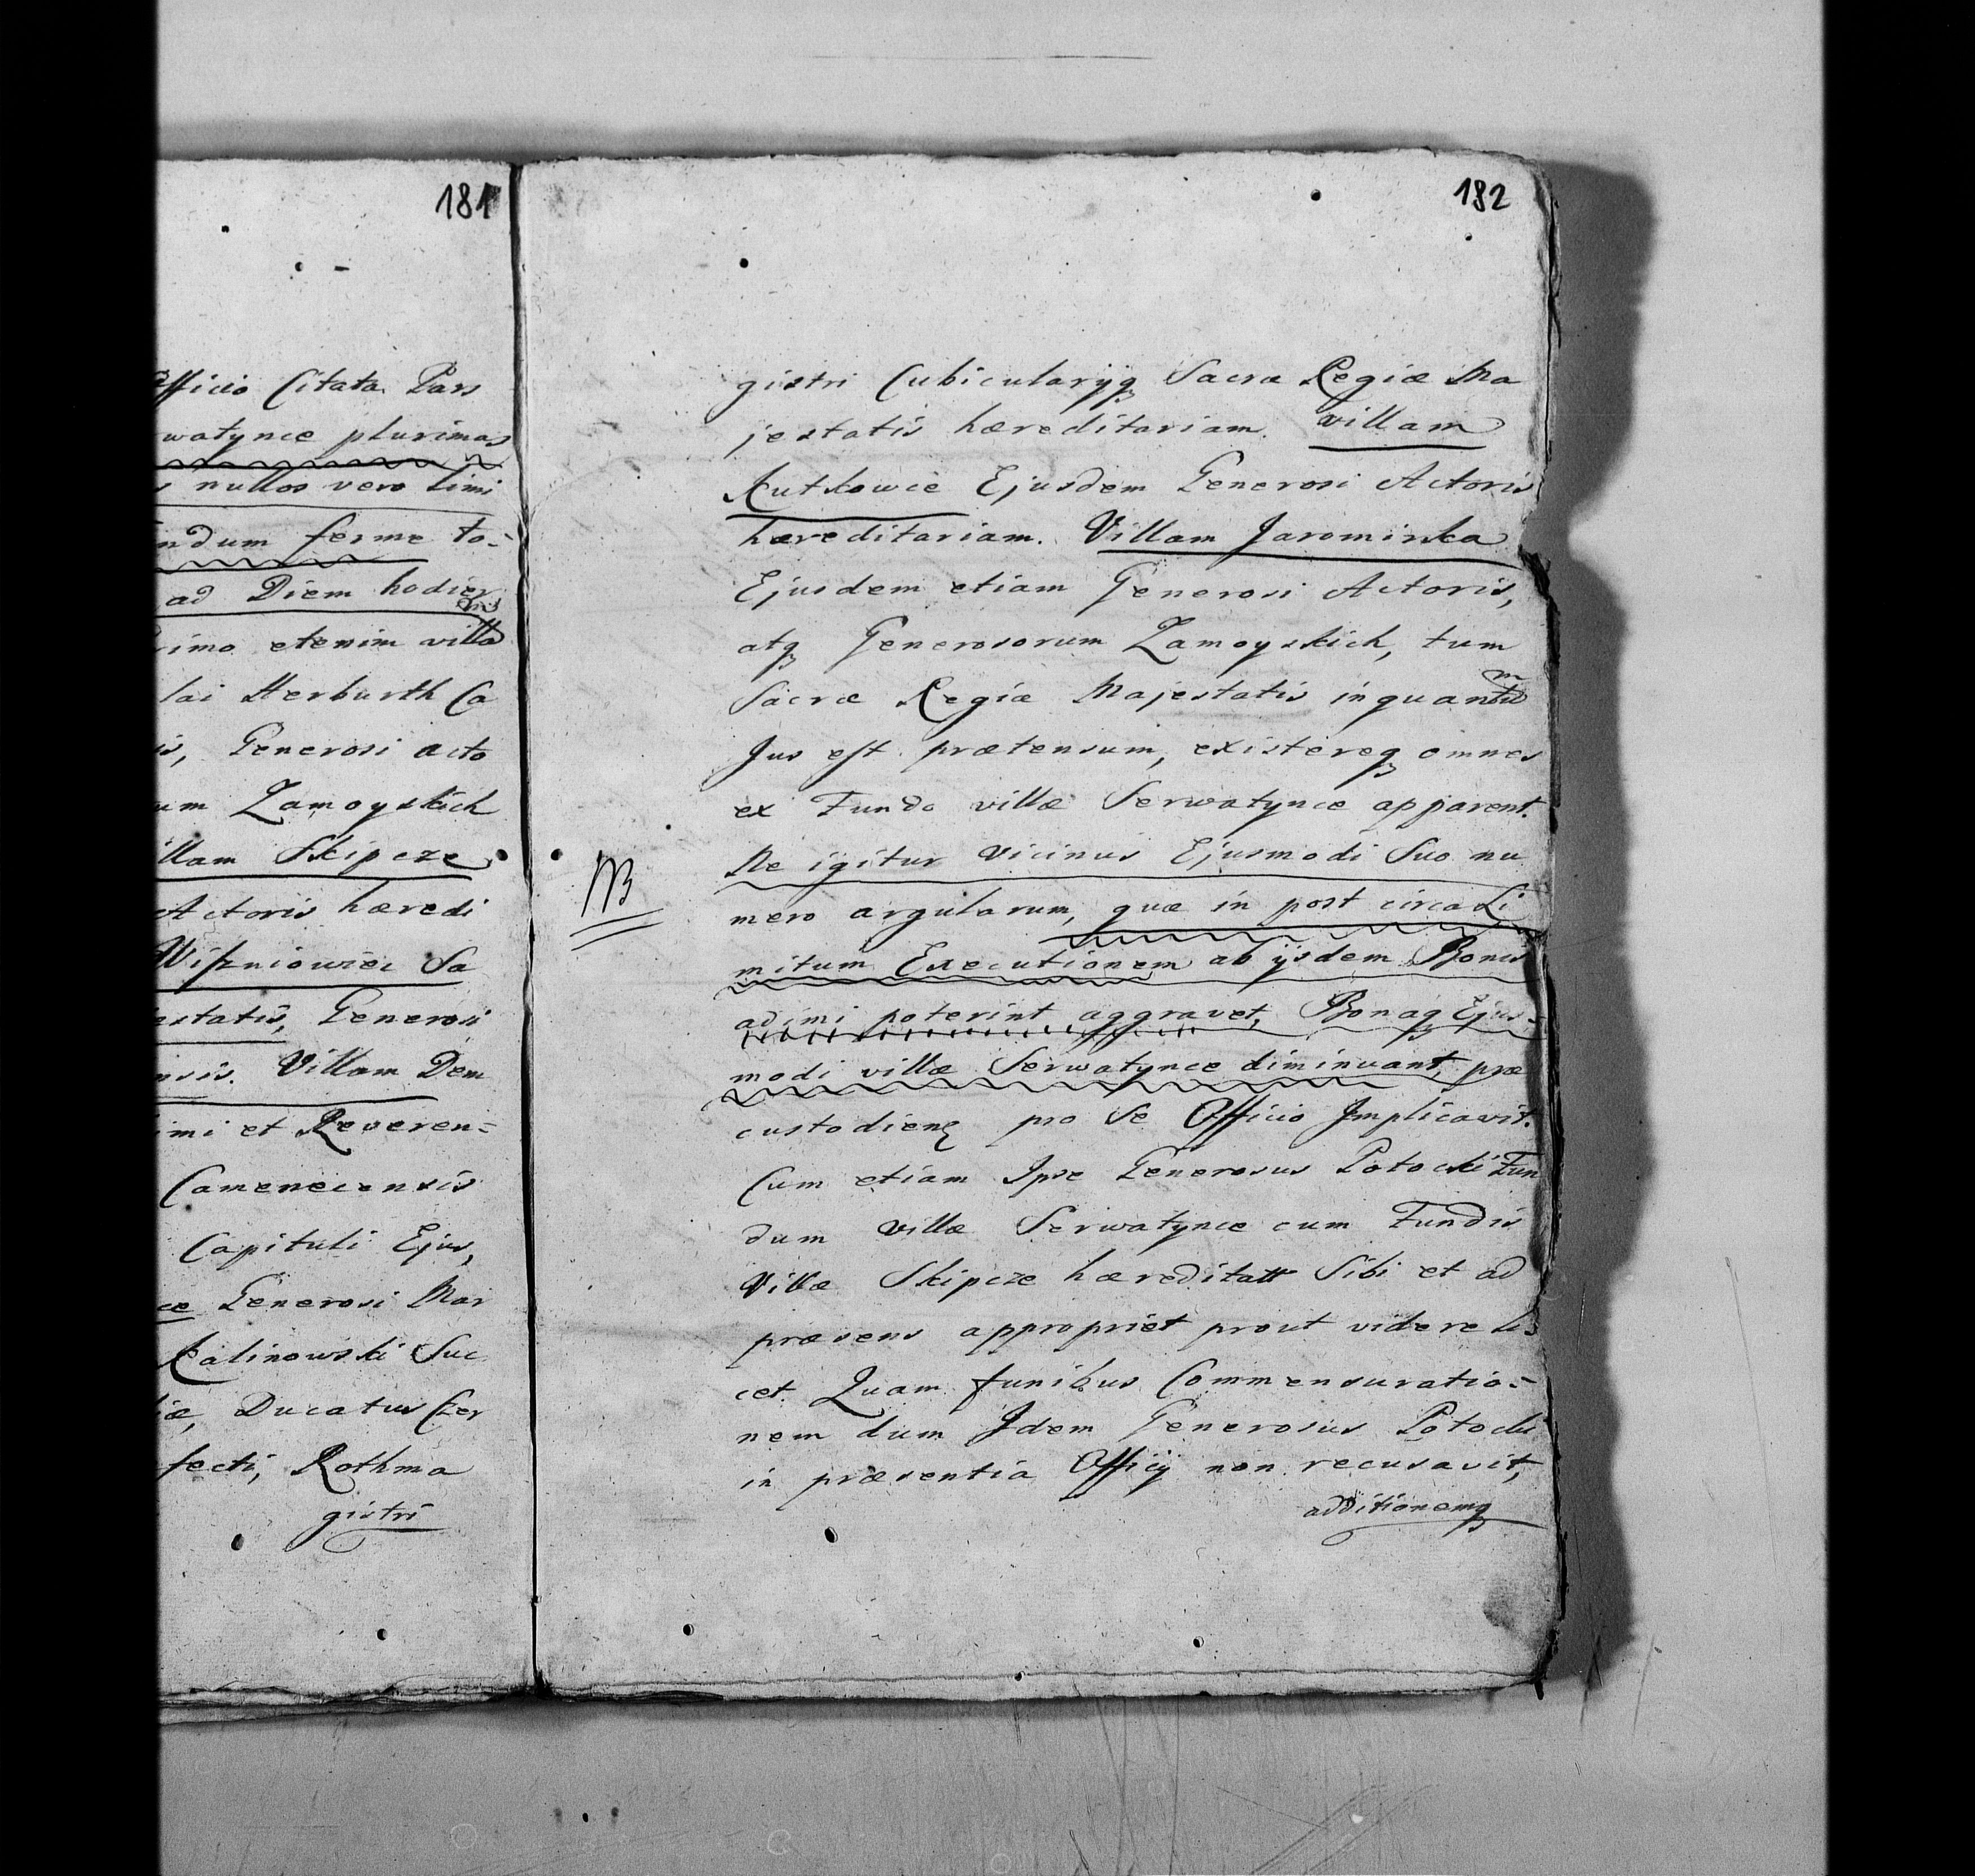 181
fficio Citata Pars
watynce plurimas
s nullos vero Limi
ndum ferme to-
ad Diem hodier
imo etenim villa
lai Herburth Ca
is, Generosi acto
um Zamoyskich
illam Skipcze
Actoris hæredi
Wiszniowiec Sa
estatis, Generosi
nsis. Villam Dem
imi et Reveren=
Camenecensis
Capituli Ejus,
ce Generosi Mar
Kalinowski Suc
iæ, Ducatus Czer
fecti, Rothma
gistri
182
gistri Cubicularijq Sacræ Regiæ Ma
jestatis hæreditariam. villam
Kutkowce Ejusdem Generosi Actoris
hæreditariam. Villam Jarominka
Ejusdem etiam Generosi Actoris,
atq Generosorum Zamoyskich, tum
Sacræ Regiæ Majestatis inquantum
Jus est prætensum, existereq omnes
ex Fundo villæ Serwatynce apparent.
Ne igitur Vicinus Ejusmodi Suo nu
NB
mero argularum, quæ in post circa Li
mitum Executionem ab ijsdem Bonis
adimi poterint aggravet, Bonaq Ejus=
modi villæ Serwatynce diminuant, præ
custodien pro Se Officio Implicavit.
Cum etiam Ipse Generosus Potocki Fun
dum villæ Serwatynce cum Fundis
Villæ Skipcze hæreditatt Sibi et ad
præsens appropriet prout videre li
cet Quam funibus Commensuratio=
nem dum Idem Generosus Potocki
in præsentia Officij non recusavit,
additionemq